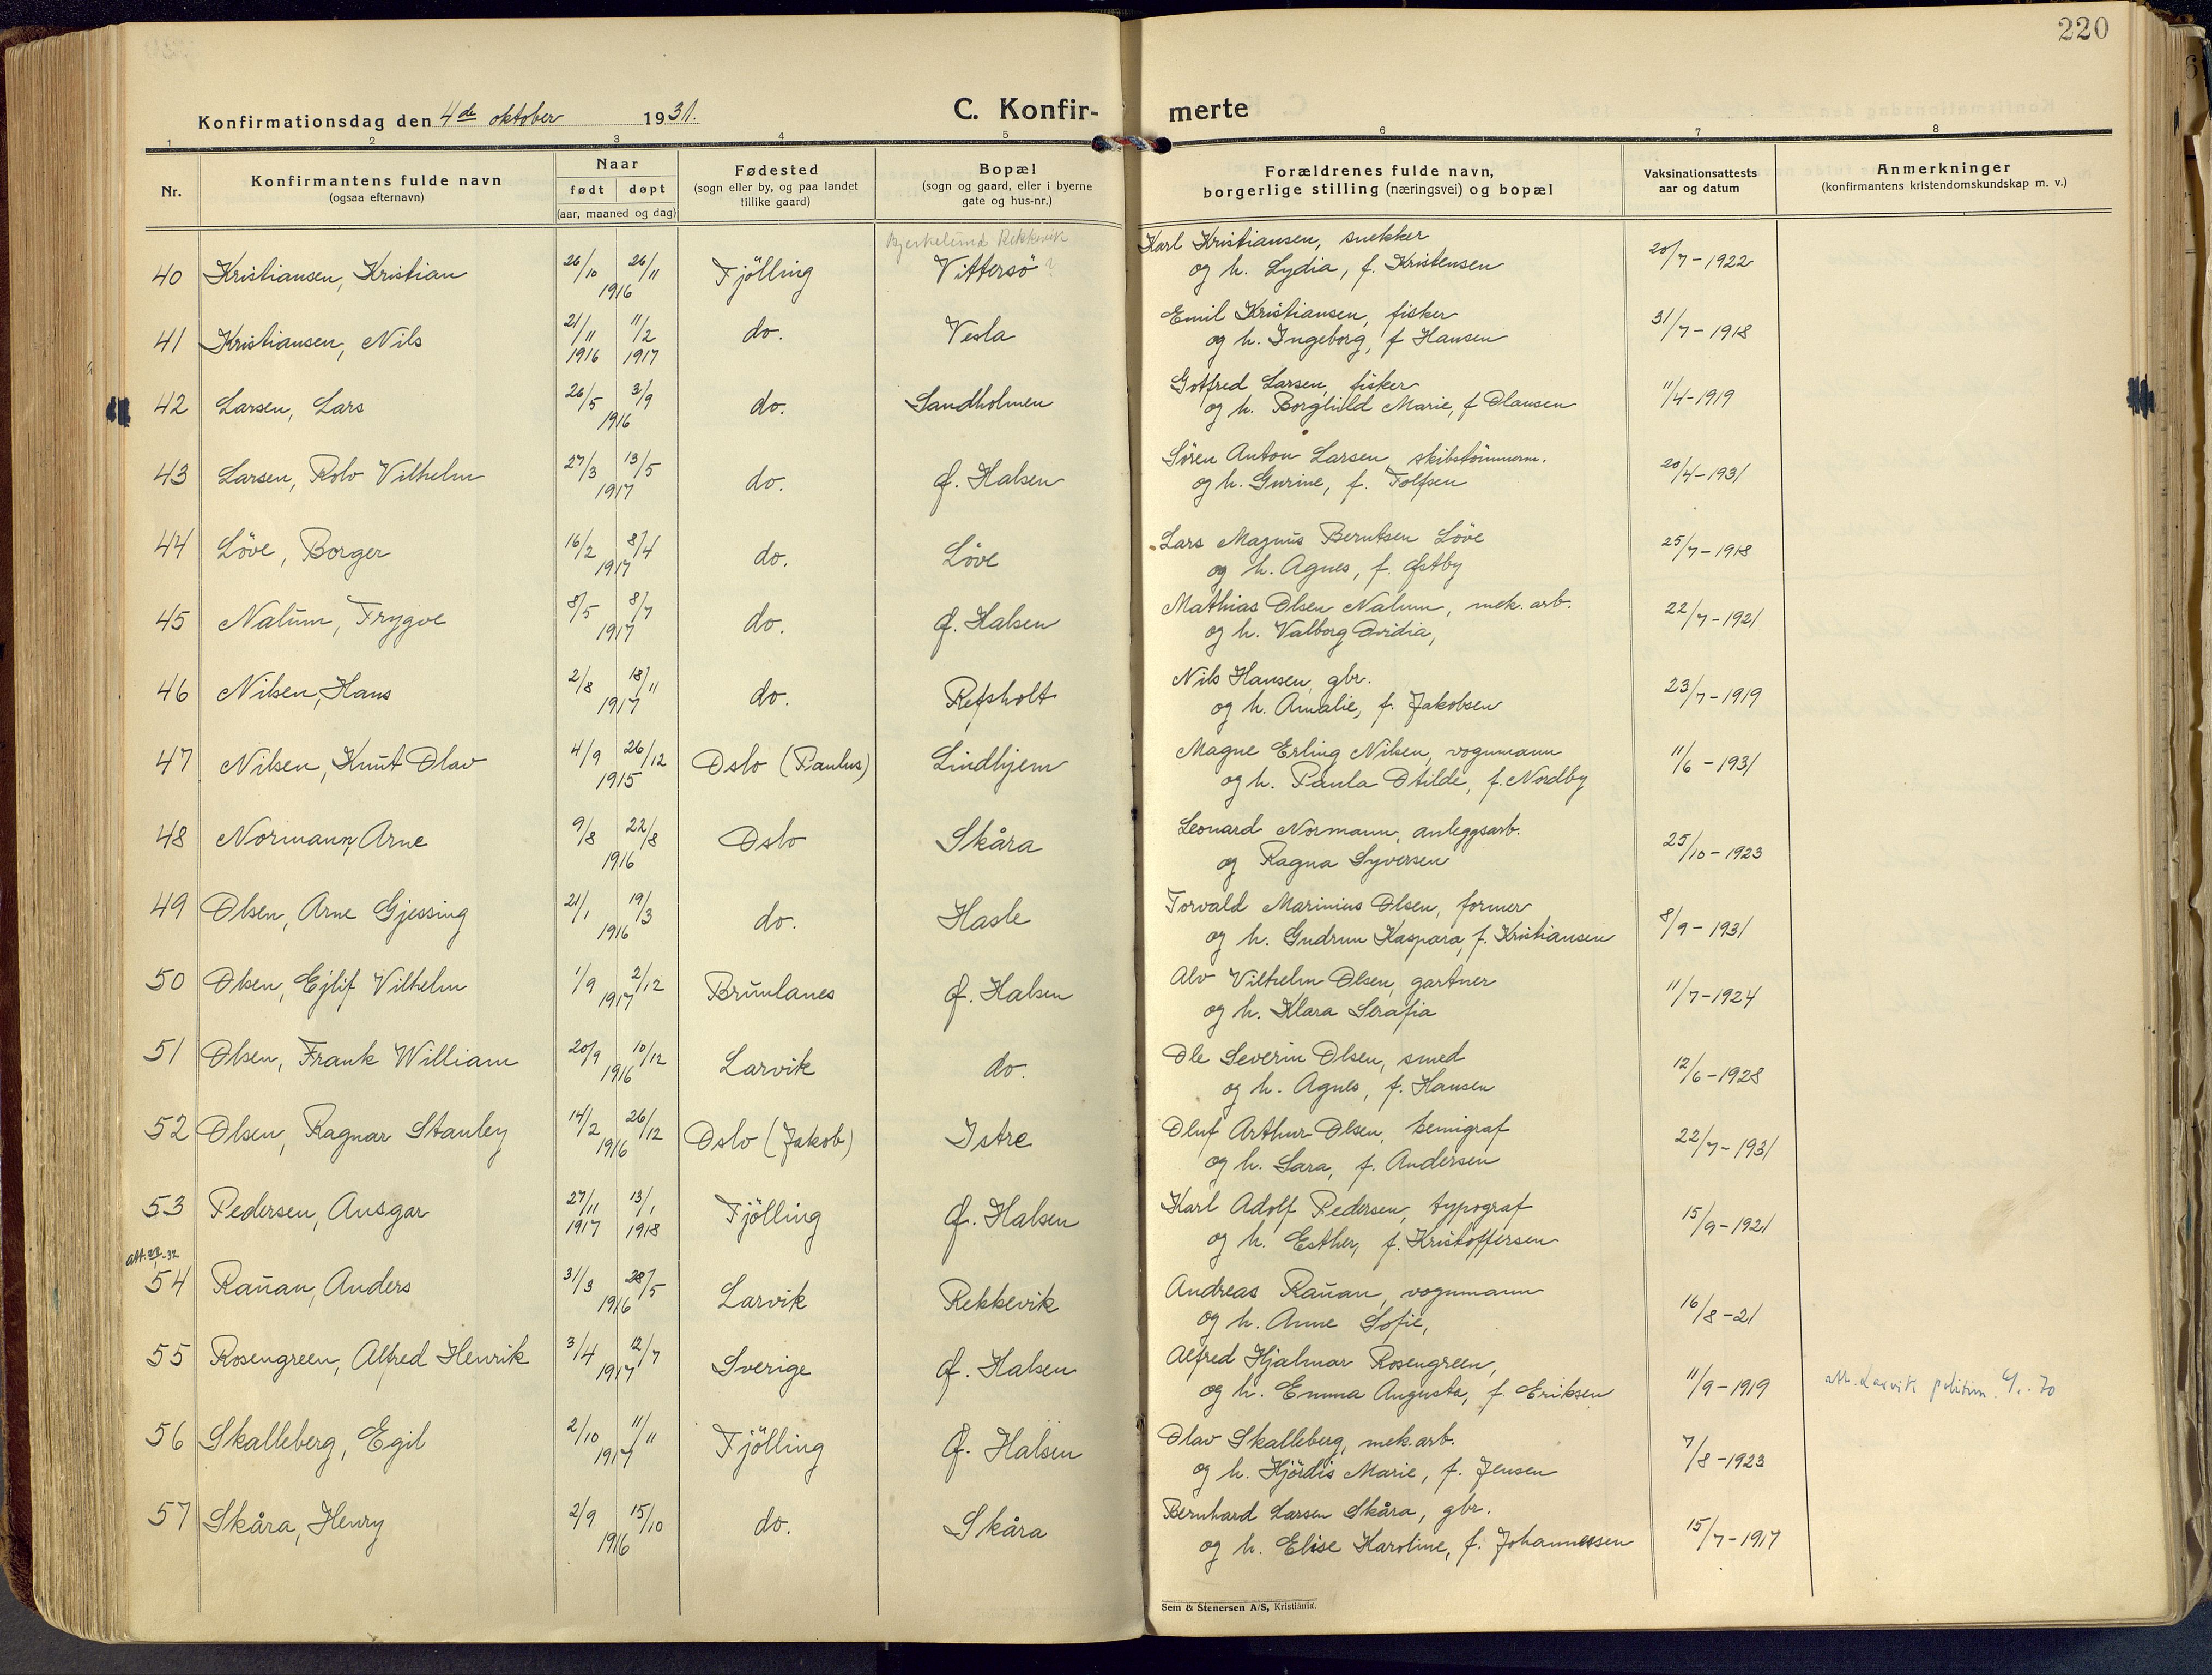 220
Konfirmationsdag den 4de oktober 1931.
C. Konfir-
merte
1 2 3 4 5 6 7 8
Nr.
Konfirmantens fulde navn
(ogsaa efternavn)
Naar
født døpt
(aar, maaned og dag)
Fødested
(sogn eller by, og paa landet
tillike gaard)
Bopæl
(sogn og gaard, eller i byerne
gate og hus-nr.)
Forældrenes fulde navn,
borgerlige stilling (næringsvei) og bopæl
Vaksinationsattests
aar og datum
Anmerkninger
(konfirmantens kristendomskundskap m. v.)
Bjerkelund Rekkevik
40 Kristiansen, Kristian 26/10 26/11 1916 Fjölling Vittersö ? Karl Kristiansen, snekker 20/7-1922
og h. Lydia, f. Kristensen
41 Kristiansen, Nils 21/11 1916 11/2 1917 do. Vesla Emil Kristiansen, fisker 31/7-1918
og h. Ingeborg, f Hansen
42 Larsen, Lars 26/5 3/9 1916 do. Sandholmen Gotfred Larsen, fisker 11/4-1919
og h. Borghild Marie, f Olausen
43 Larsen, Rolv Vilhelm 27/3 13/5 1917 do. Ø. Halsen Sören Anton Larsen, skibstömmerm. 20/4-1931
og h. Gurine, f. Tolfsen
44 Löve, Borger 16/2 8/4 1917 do. Löve Lars Magnus Berntsen Löve 25/7-1918
og h. Agnes, f. Østby
45 Nalum, Trygve 8/5 8/7 1917 do. Ø. Halsen Mathias Olsen Nalum, mek. arb. 22/7-1921
og h. Valborg Ovidia,
46 Nilsen, Hans 2/8 18/11 1917 do. Refsholt Nils Hansen, gbr. 23/7-1919
og h. Amalie, f. Jakobsen
47 Nilsen, Knut Olav 4/9 26/12 1915 Oslo (Paulus) Lindhjem Magne Erling Nilsen, vognmann 11/6-1931
og h. Paula Otilde, f. Nordby
48 Normann, Arne 9/8 22/8 1916 Oslo Skåra Leonard Normann, anleggsarb. 25/10-1923
og Ragna Syversen
49 Olsen, Arne Gjessing 21/1 19/3 1916 do. Hasle Torvald Marinius Olsen, former 8/9-1931
og h. Gudrun Kaspara, f. Kristiansen
50 Olsen, Ejlif Vilhelm 1/9 2/12 1917 Brunlanes Ø. Halsen Alv Vilhelm Olsen, gartner 11/7-1924
og h. Klara Serafia
51 Olsen, Frank William 20/9 10/12 1916 Larvik do. Ole Severin Olsen, smed 12/6-1928
og h. Agnes, f. Hansen
52 Olsen, Ragnar Stanley 14/2 26/12 1916 Oslo (Jakob) Istre Oluf Arthur Olsen, kemigraf 22/7-1931
og h. Sara, f. Andersen
53 Pedersen, Ansgar 27/11 1917 13/1 1918 Fjölling Ø. Halsen Karl Adolf Pedersen, typograf 15/9-1921
og h. Esther, f. Kristoffersen
54 Rauan, Anders 31/3 28/5 1916 Larvik Rekkevik Andreas Rauan, vognmann 16/8-21
og h. Anne Sofie,
55 Rosengreen, Alfred Henrik 3/4 12/7 1917 Sverige Ø. Halsen Alfred Hjalmar Rosengreen, 11/9-1919
og h. Emma Augusta, f Eriksen
att. Larvik
56 Skalleberg, Egil 2/10 11/11 1917 Fjölling Ø. Halsen Olav Skalleberg, mek. arb. 7/8-1923
og h. Hjördis Marie, f. Jensen
57 Skåra, Henry 2/9 15/10 1916 do. Skåra Bernhard Larsen Skåra, gbr. 15/7-1917
og h. Elise Karoline, f. Johannessen
Sem & Stenersen A/S, Kristiania.